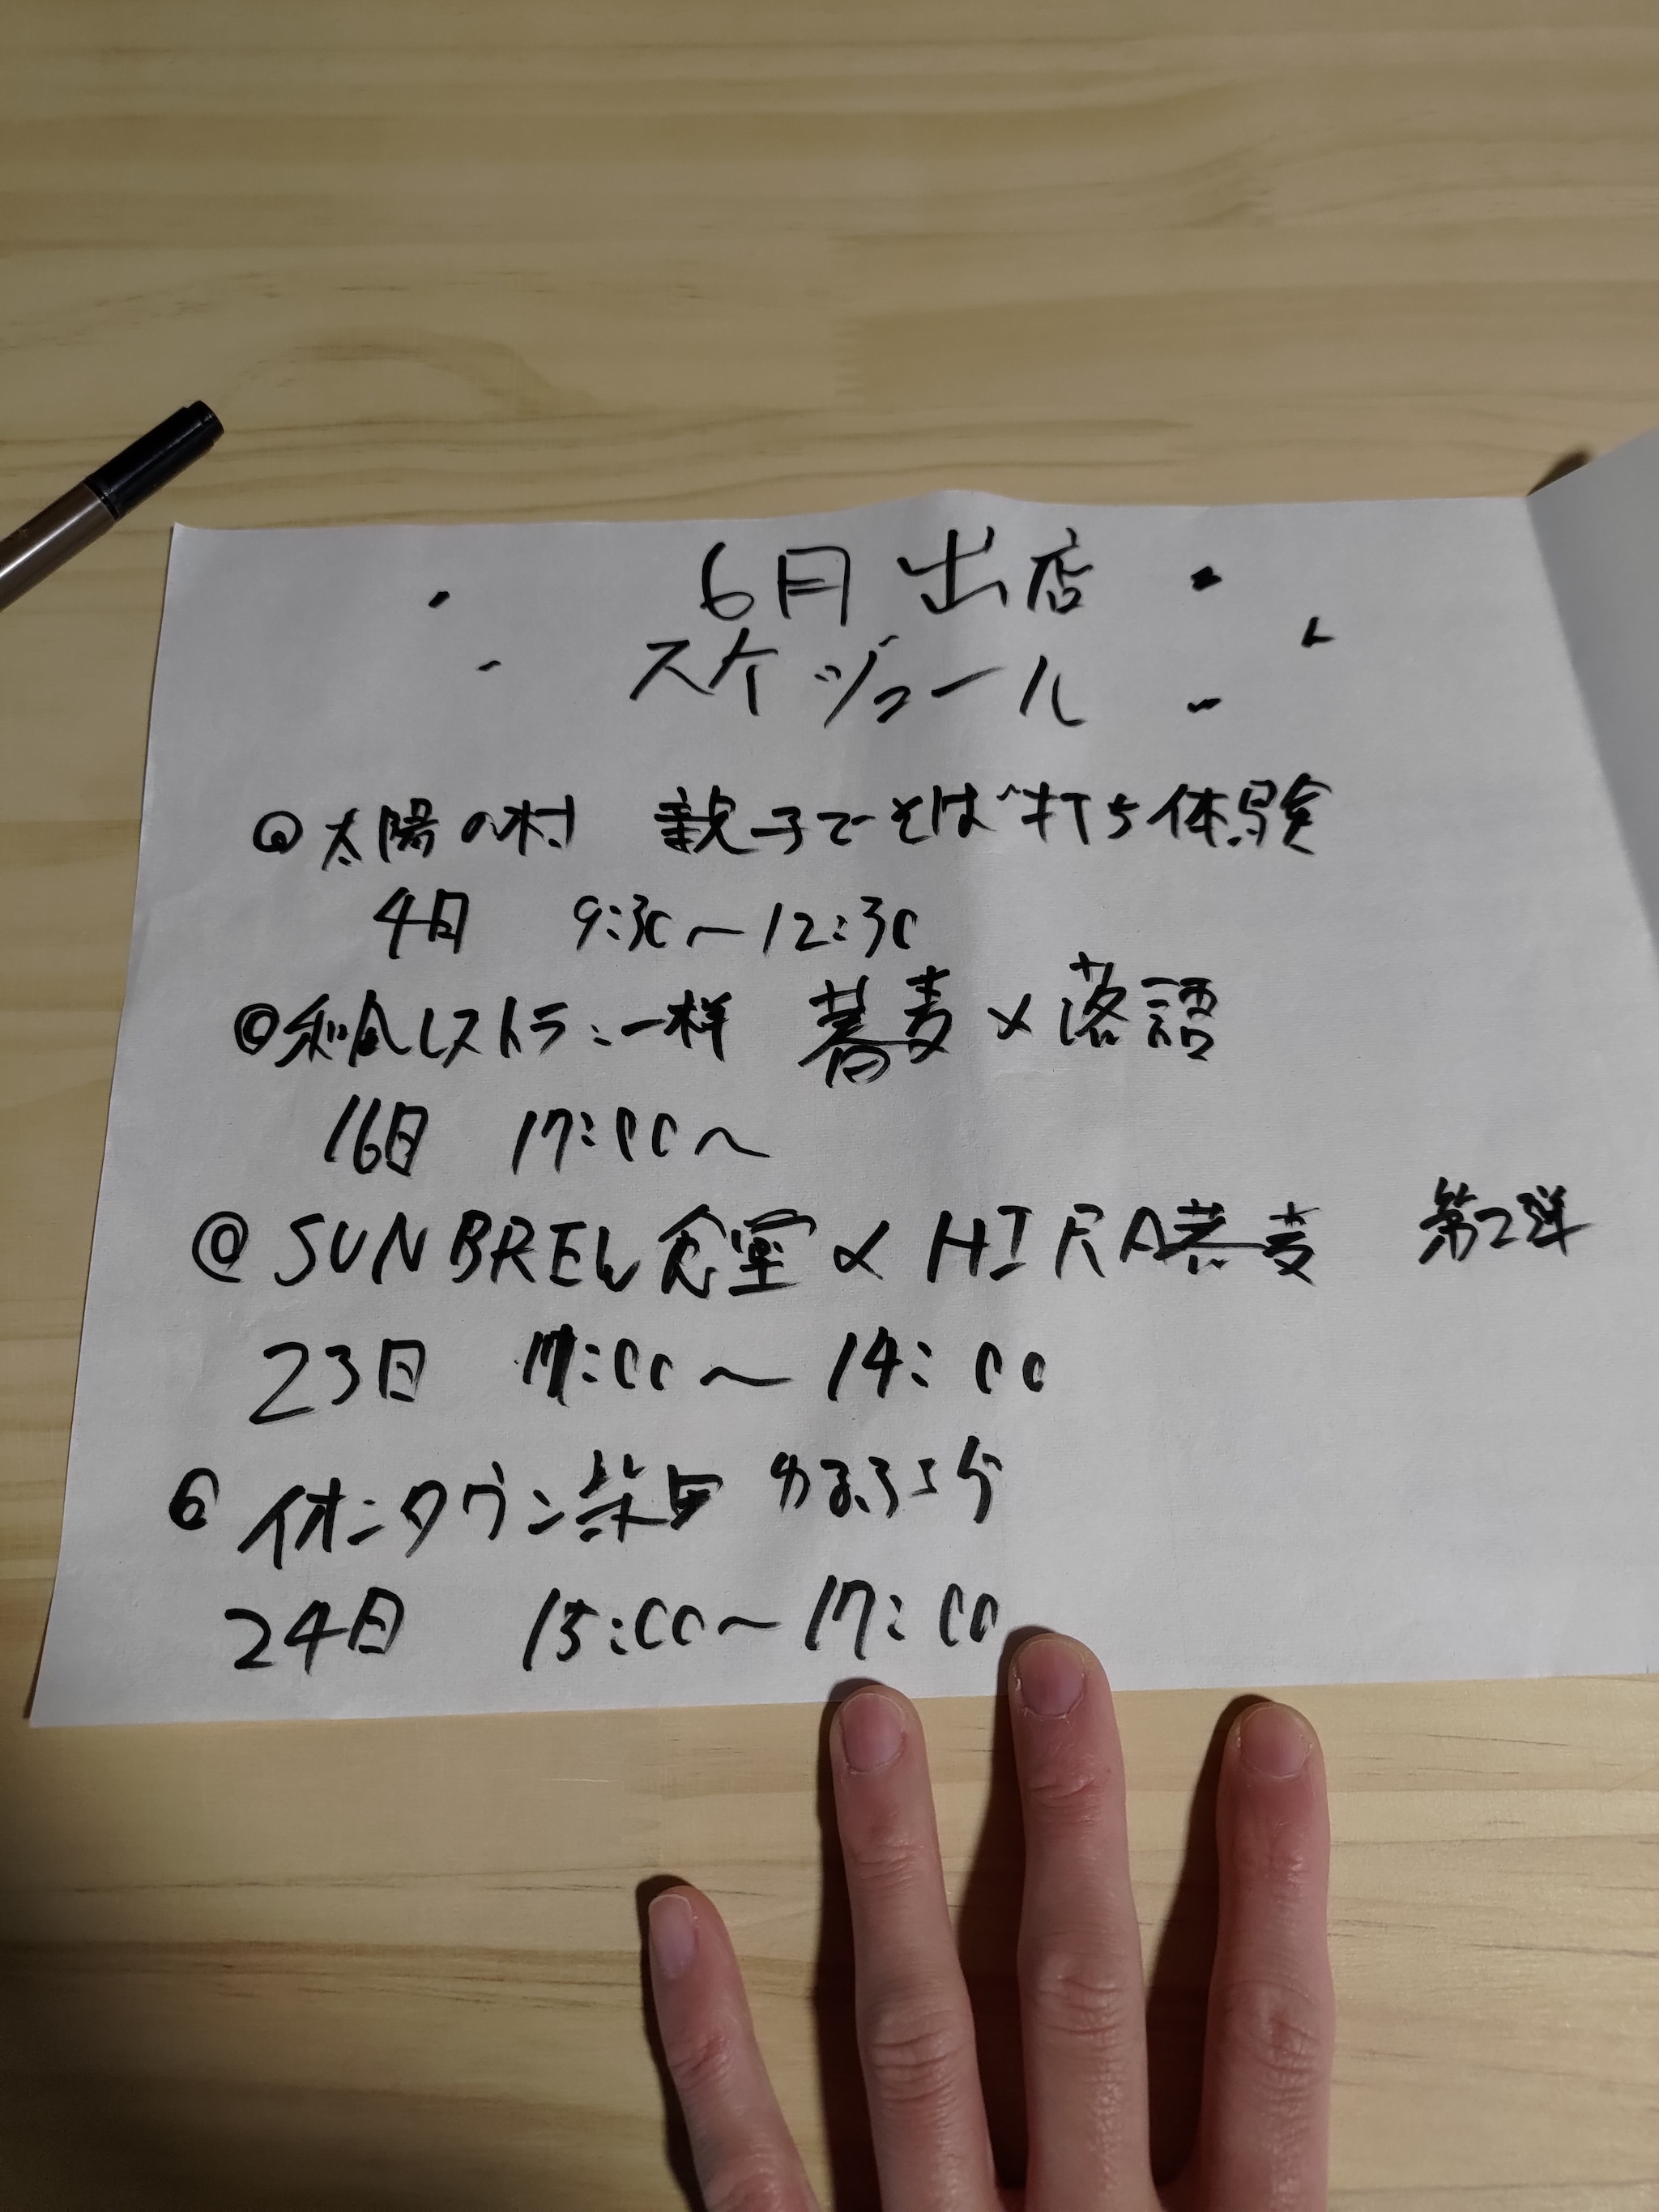 6月 出店
スケジュール
@太陽の村 親子でそば打ち体験
4日 9:30〜12:30
@和食レストラン一祥 蕎麦×落語
16日 17:00〜
@SUNBREW食堂×HIRA蕎麦 第2弾
23日 :00〜14:00
@イオンタウン柴田
24日 15:00〜17:00